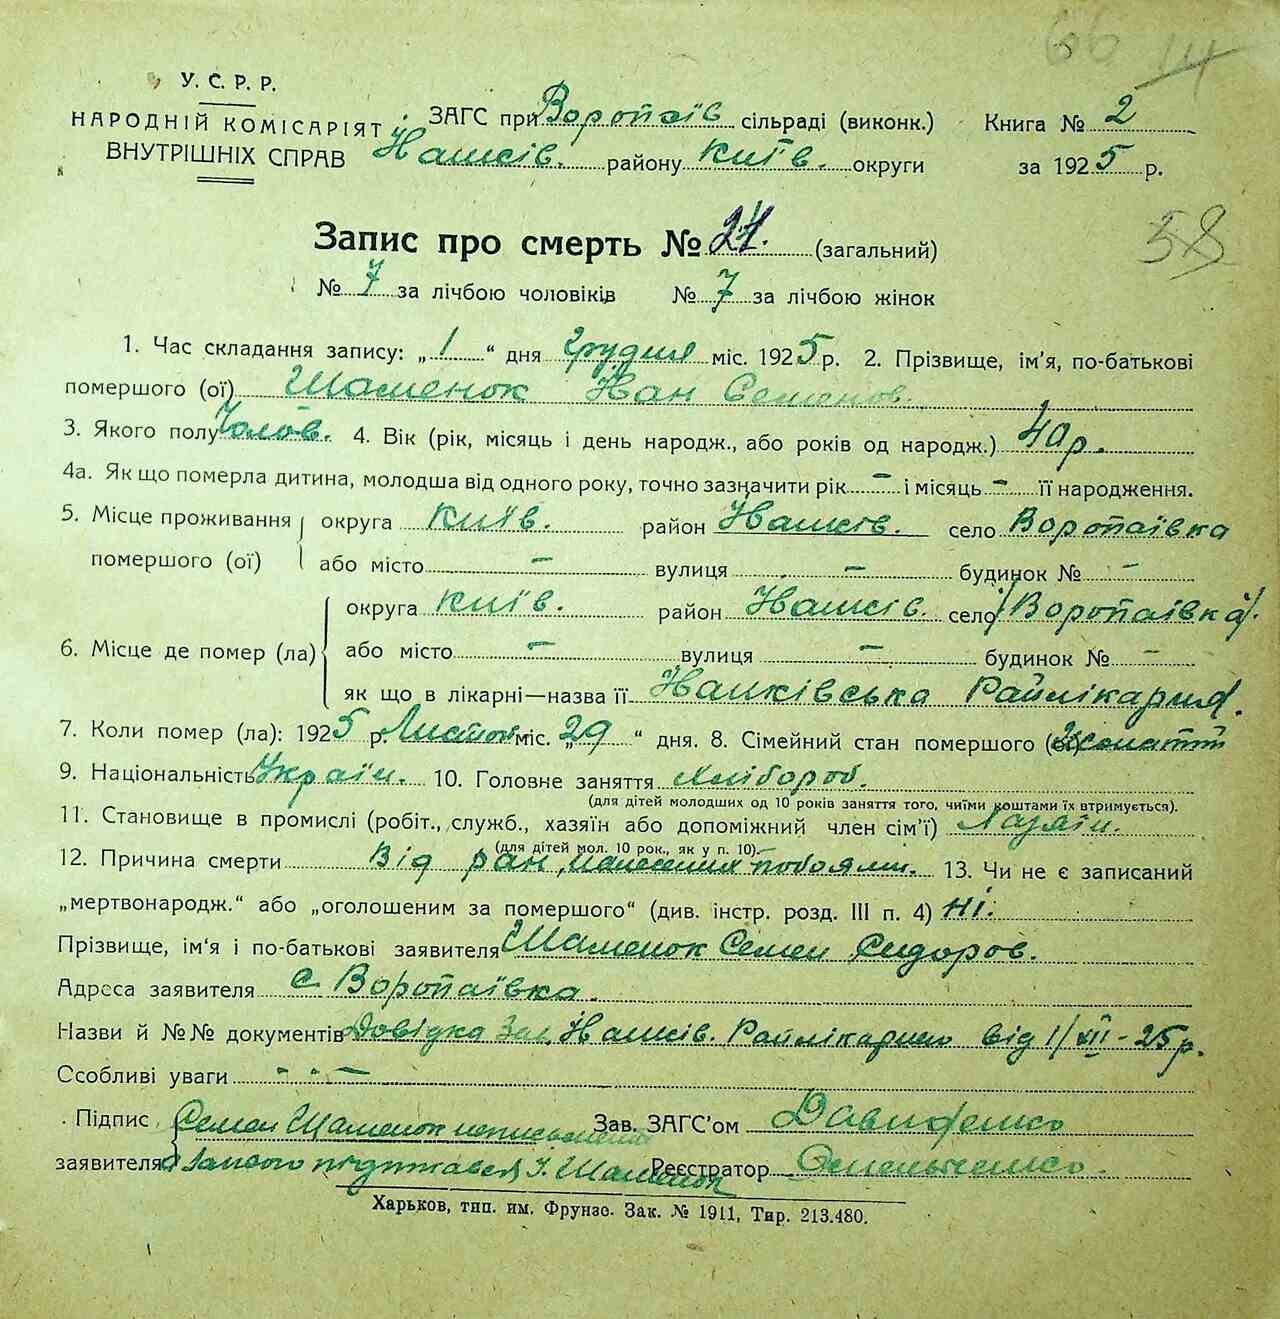 66 14
У. С. Р. Р.
НАРОДНІЙ КОМІСАРІЯТ
ВНУТРІШНІХ СПРАВ
ЗАГС при Воропаїв сільраді (виконк.)
районy Київ. округи
Книга № 2
за 1925 р.
58
Запис про смерть № (загальний)
№ 7 за лічбою чоловіків № 7 за лічбою жінок
1. Час складання запису: „1“ дня Грудня міс. 1925 р. 2. Прізвище, ім'я, по-батькові
помершого (ої) Шаменок Іван Семенов.
3. Якого полу Чолов. 4. Вік (рік, місяць і день народж., або років од народж.) 40 р.
4а. Як що померла дитина, молодша від одного року, точно зазначити рік – і місяць – її народження.
5. Місце проживання помершого (ої) округа Київ. район село Воропаївка
або місто – вулиця – будинок № –
6. Місце де помер (ла) округа Київ. район село /Воропаївка/.
або місто – вулиця – будинок № –
як що в лікарні—назва її Райлікарня.
7. Коли помер (ла): 1925 р. Листоп міс. „29“ дня. 8. Сімейний стан помершого (ої)
9. Національність Україн. 10. Головне заняття Хлібороб.
(для дітей молодших од 10 років заняття того, чиїми коштами їх втримується).
11. Становище в промислі (робіт., служб., хазяїн або допоміжний член сім'ї) Хазяїн.
(для дітей мол. 10 рок., як у п. 10).
12. Причина смерти Від ран, нанесених побоями. 13. Чи не є записаний
„мертвонародж.“ або „оголошеним за помершого“ (див. інстр. розд. III п. 4) Ні.
Прізвище, ім'я і по-батькові заявителя Шаменок Семен Сидоров.
Адреса заявителя с. Воропаївка.
Назви й №№ документів Довідка Зав. Райлікарнею від 1/XII-25 р.
Ссобливі уваги – – –
Підпис заявителя Семен Шаменок неписьменний
а за нього підписався І. Шаменок
Зав. ЗАГС'ом Давиденко
Реєстратор Омельченко.
Харьков, тип. им. Фрунзе. Зак. № 1911, Тир. 213.480.